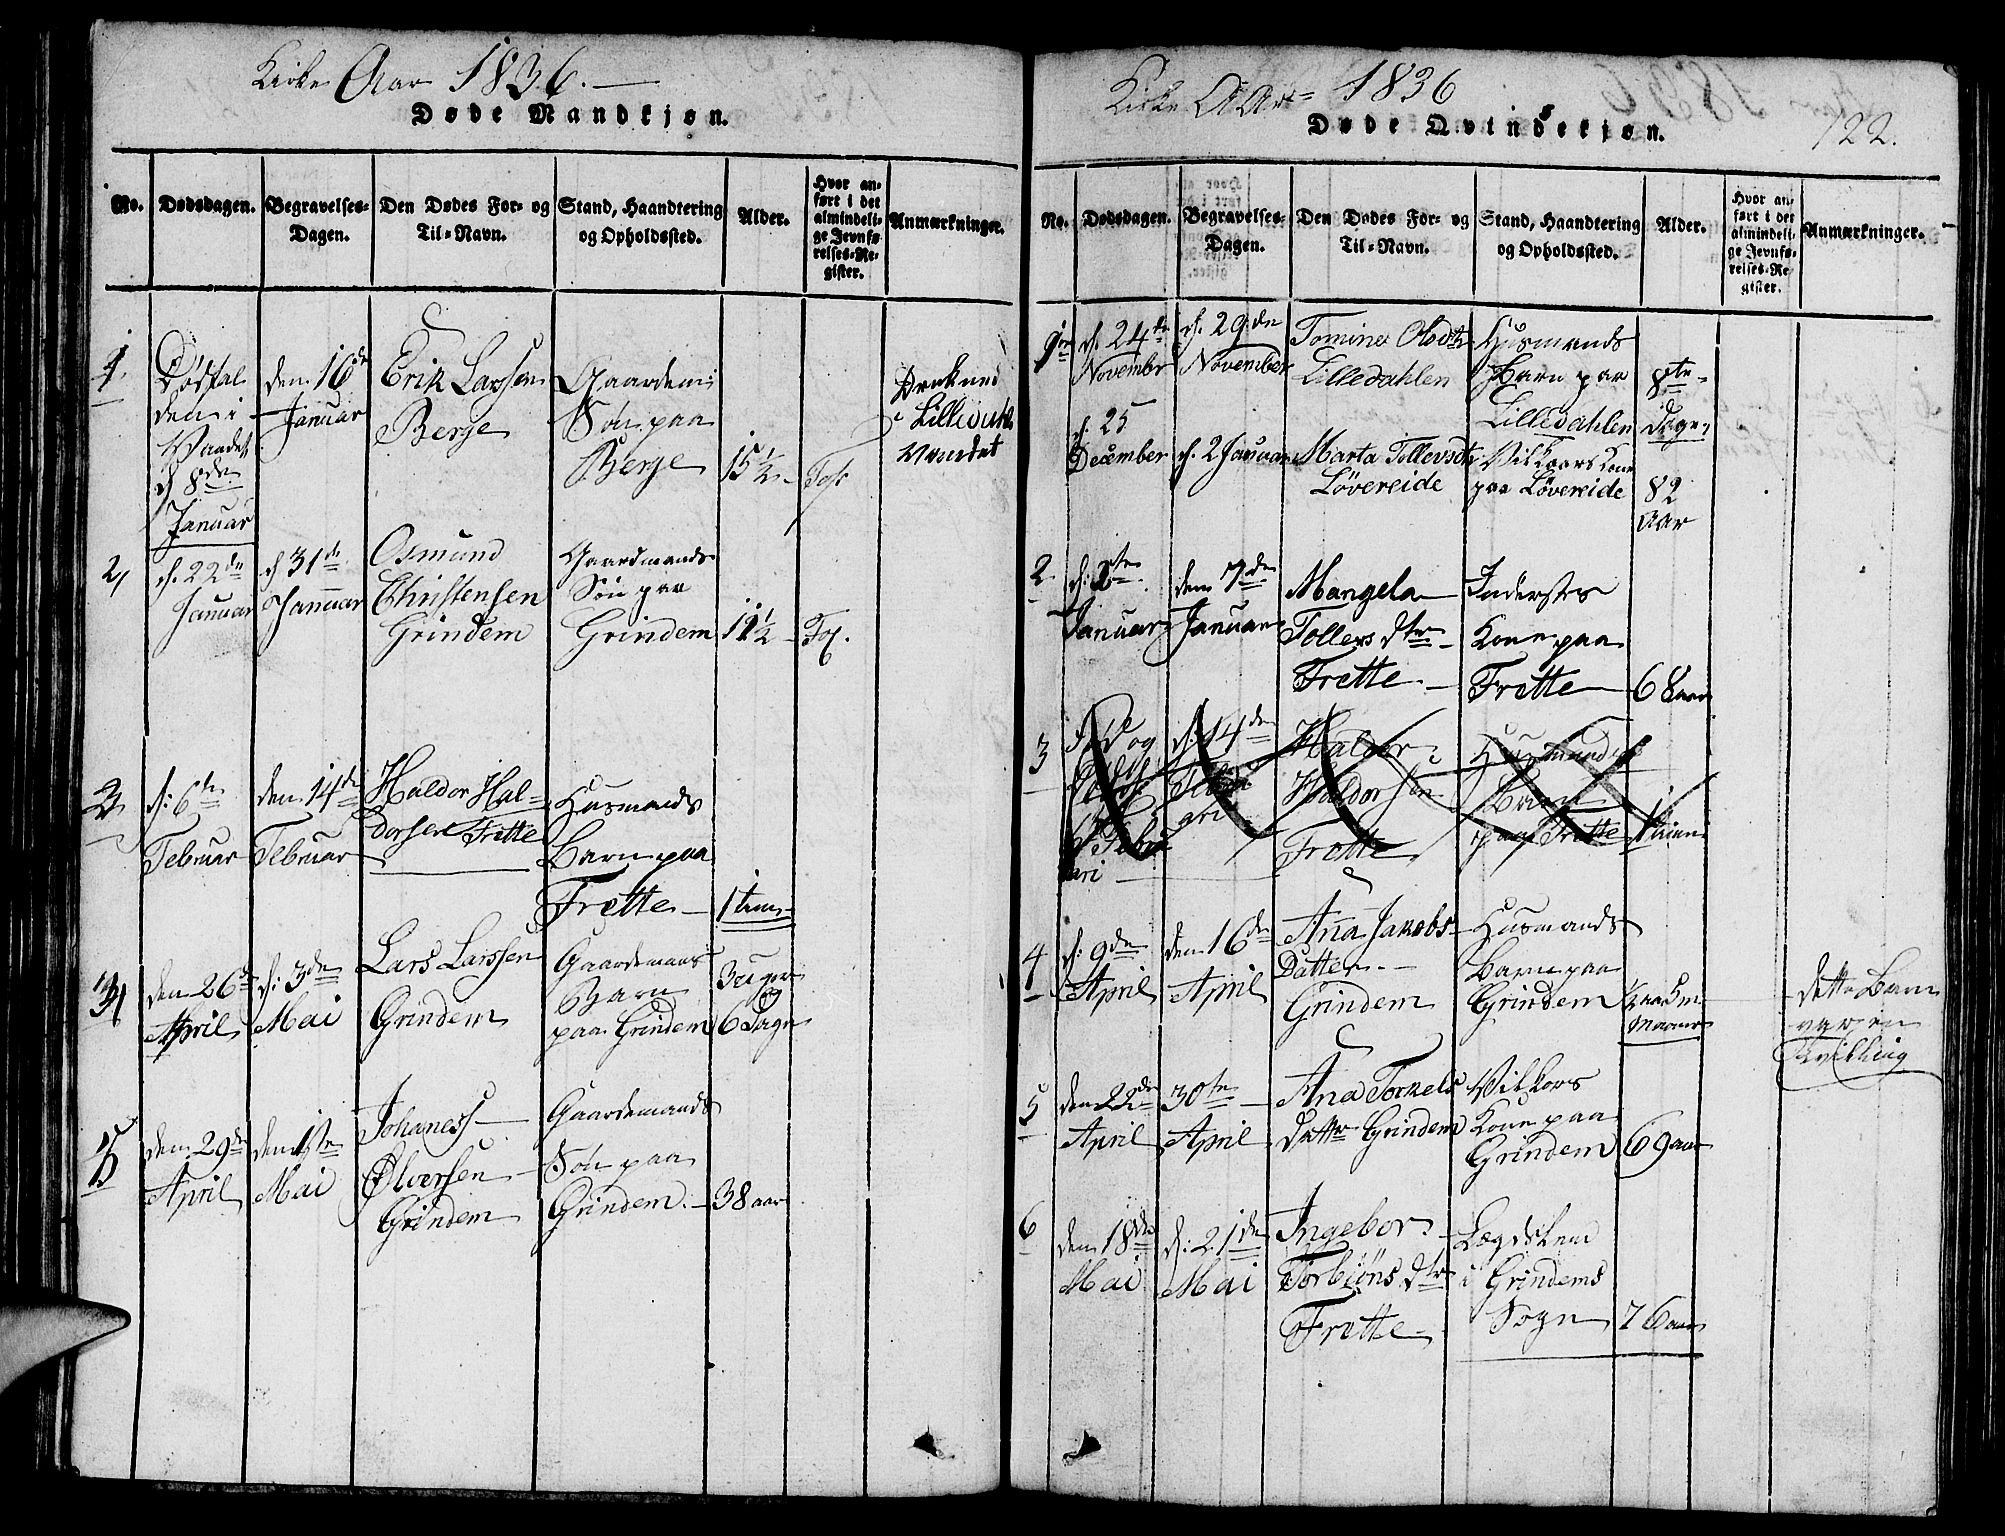 Kirke Aar 1836.
Døde Mandkjøn.
No.
Dødsdagen.
Begravelses-
Dagen.
Den Dødes For- og
Til-Navn.
Stand, Haandtering
og Opholdssted.
Alder.
Hvor an-
ført i det
almindeli-
ge Jevnfø-
relses-Re-
gister.
Anmærkninger.
1.
Dødfal
den i
Vandet
d 8de
Januar
den 16de
Januar
Erik Larssen
Berge
Gaardem:
Søn paa
Berge
15 1/2
Drukned
i Lilledals
Vandet
2,
d. 22de
Januar
d 31te
Januar
Osmund
Christensen
Grindem
Gaardmands
Søn paa
Grindem
11 1/2
3
d: 6te
Februar
den 14de
Februar
Haldor Hal-
dorsen Frette
Husmands
Barn paa
Frette
1 time
4
den 26de
April
d: 3de
Mai
Lars Larssen
Grindem
Gaardemans
Barn
paa Grindem
3 uger
og
6 Dage
5
den 29de
April
den 1ste
Mai
Johaness
Ølversen
Grindem
Gaardemands
Søn paa
Grindem.
38 aar
Kirke Aar 1836
Døde Qvindekjøn.
122.
No.
Dødsdagen.
Begravelses-
Dagen.
Den Dødes For- og
Til-Navn.
Stand, Haandtering
og Opholdssted.
Alder.
Hvor an-
ført i det
almindeli-
ge Jevnfø-
relses-Re-
gister.
Anmærkninger.
d. 24de
Novembr
d. 29de
November
Tomine Olsdtr
Lilledahlen
Husmands
Barn paa
Lilledahlen
8te
Dage
d: 25
December
d. 2 Januar
Marta Tollevsdtr
Løvereide
Vilkaars Kone
paa Løvereide
82
aar
2
Januar
den 7de
Januar
Mangela
Tollevs dtr
Frette
Inderstes
Kone paa
Frette
68 aar
3
Fød og
Febru
ari
d: 14de
Febru
ari
Haldor
Haldorsøn
Frette
Husmands
Barn
paa Frette
1 time
4
d: 9de
April
den 16de
April
Ana Jakobs-
Datter.
Grindem
Husmands
Barn paa
Grindem
dette Barn
var en
Tvilling
5
den 22de
April
30te
April
Ana Torkels
Datter Grindem
Vilkors
Kone paa
Grindem
69 aar
6
den 18de
Mai
d: 21de
Mai
Ingebor
Torbiøns dtr
Frette
Lægdslem
i Grindems
Sogn
76 aar